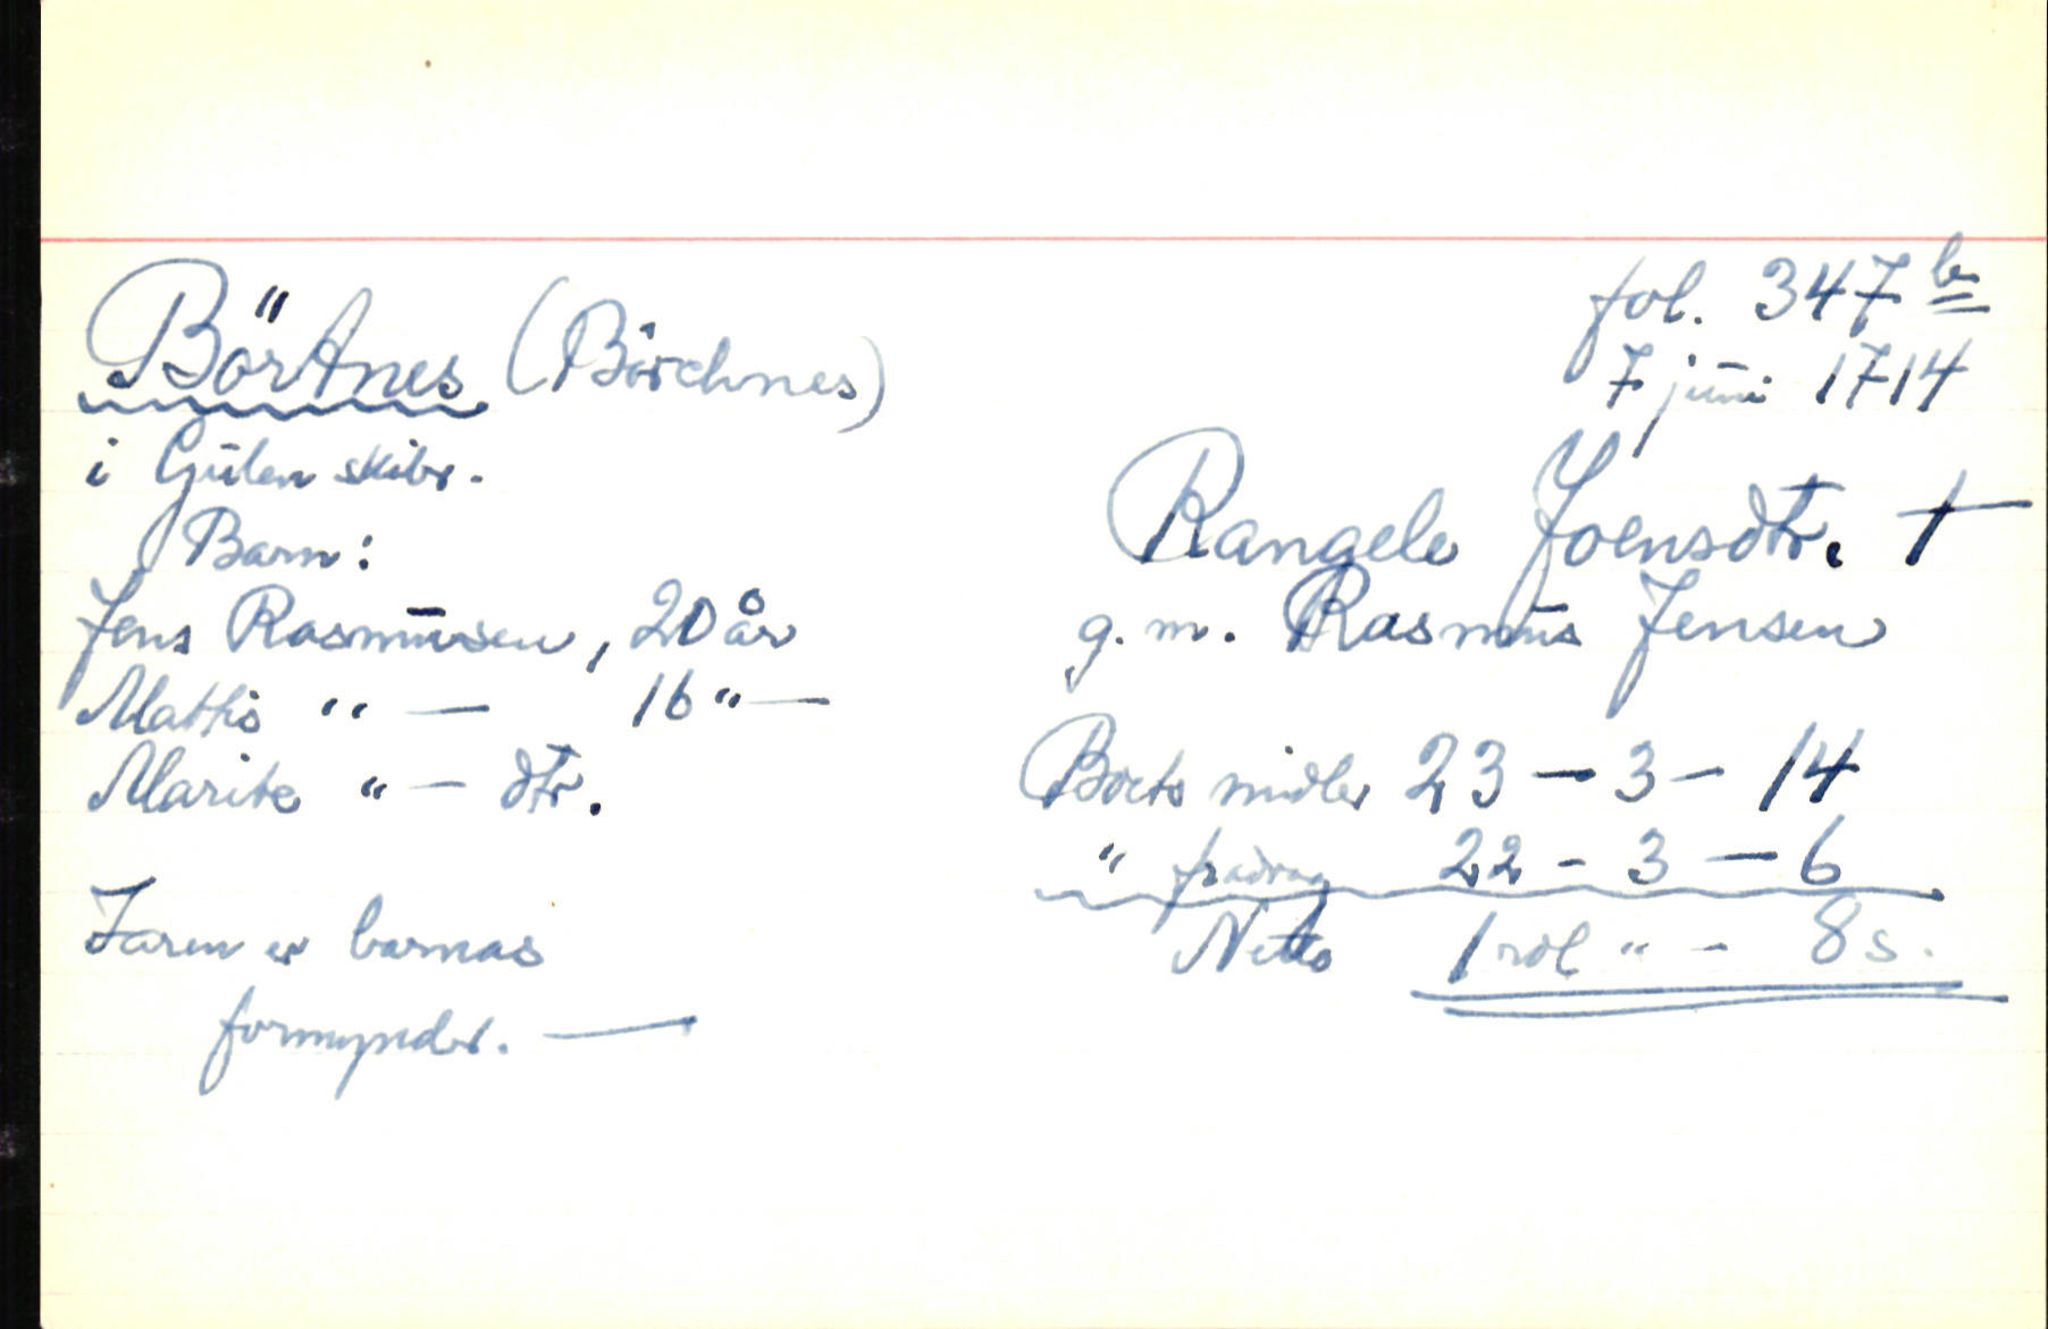 fol. 347 b
7 juni 1714
Börtnes (Börchnes)
i Gulen skibr.
Barn:
Jens Rasmusen, 20 år
Mattis " — 16 " —
Marite " — dtr.
Faren er barnas
formynder. —
Rangele Joensdtr. †
g. m. Rasmus Jensen
Boets midler 23 — 3 — 14
" fradrag 22 - 3 — 6
Netto 1 rdl " - 8 s.